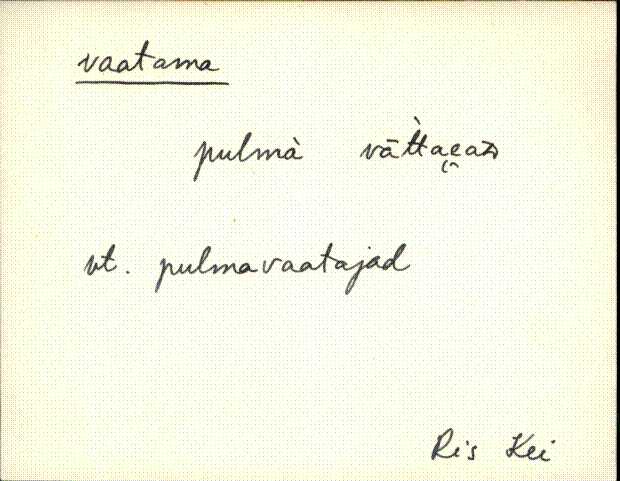 vaatama
pulmà vāt̀tae̯aᴅ
vt. pulmavaatajad
Ris Kei